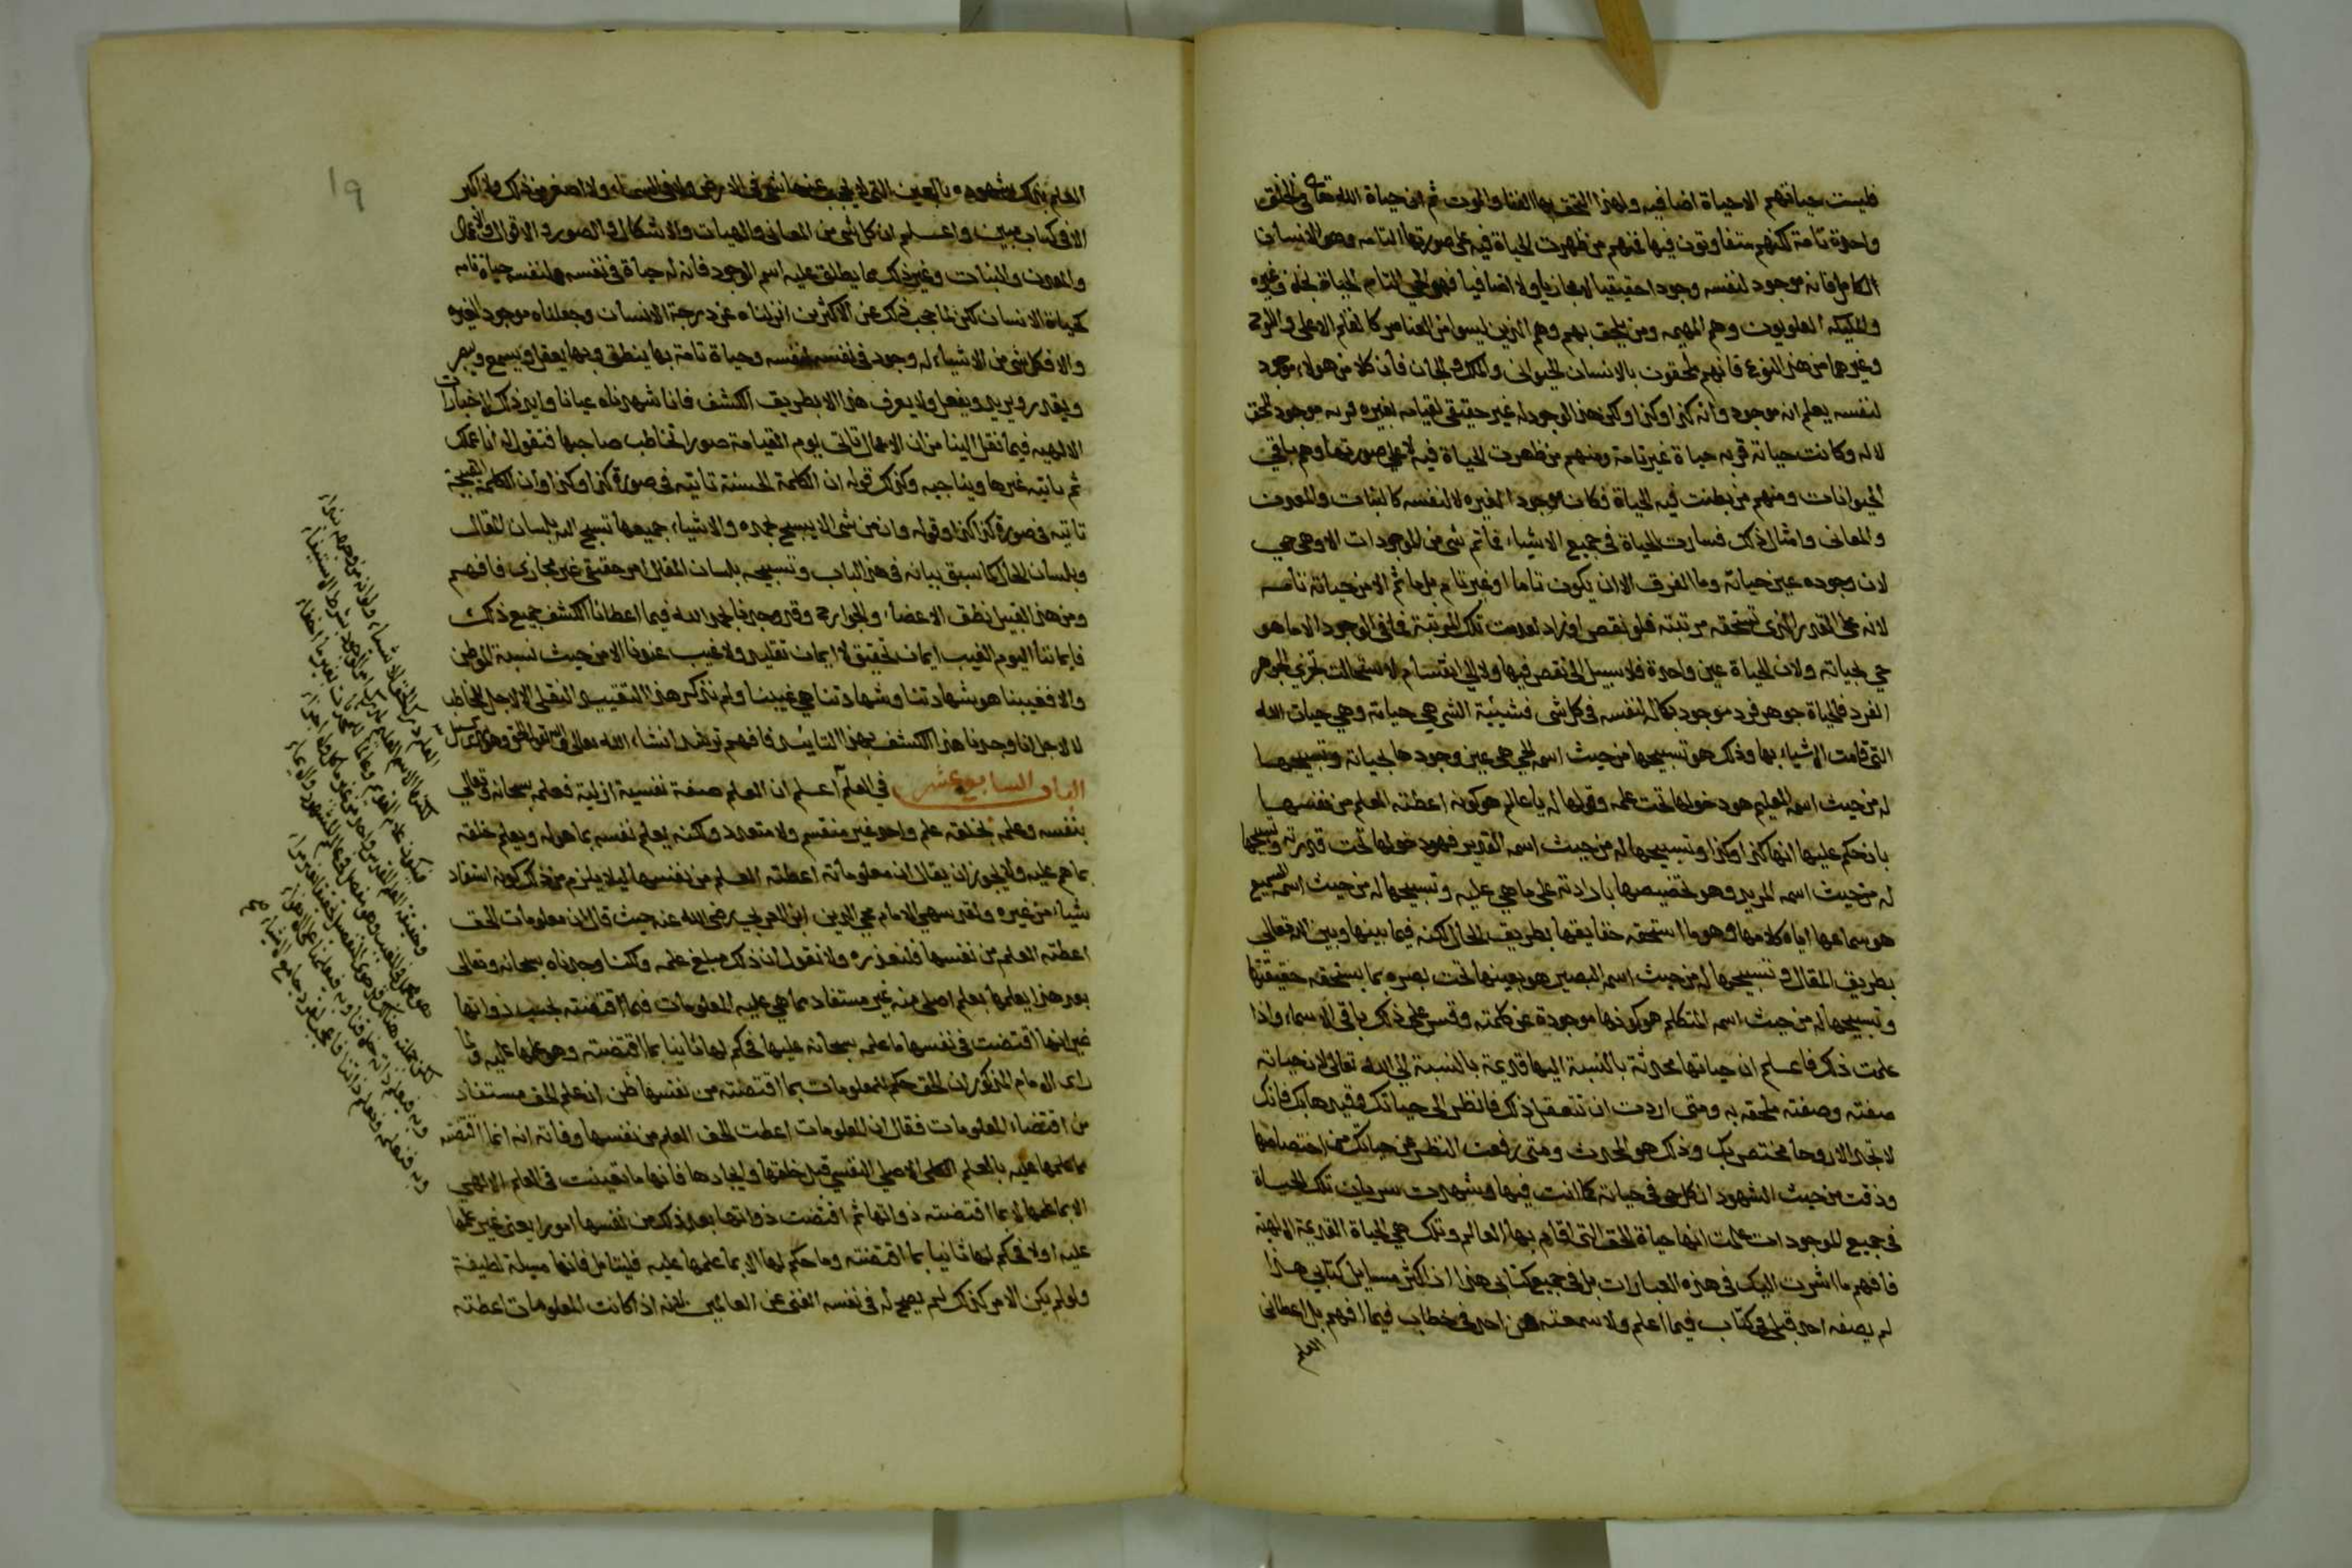 فليست حياتهم الا حياة اضافيه ولهذا التحق بها الفنا والموت ثم ان حياة الله تعالى في الخلق
واحدة تامة لكنهم متفاوتون فيها فمنهم من ظهرت الحياة فيه على صورتها التامه وهو الانسان
الكامل فانه موجود لنفسه وجودا حقيقيا لا مجازيا ولا اضافيا فهو الحي التام الحياة بخلاف غيره
والمليكه العلويون وهم المهيمه ومن يلحق بهم وهم الذين ليسوا من العناصر كالقلم الاعلى واللوح
وغيرهما من هذا النوع فانهم ملحقون بالانسان الحيوانى والملك والجان فان كلا من هولاء موجود
لنفسه يعلم انه موجود وانه كذا وكذا ولكن هذا الوجود له غير حقيقى لقيامه بغيره فربه موجود للحق
لا له وكانت حياة ربه حياة غير تامة ومنهم من ظهرت الحياة فيه لا على صورتها وهم باقي
الحيوانات ومنهم من بطنت فيه الحياة فكان موجودا لغيره لا لنفسه كالنبات والمعدن
والمعانى وامثال ذلك فسارت الحياة في جميع الاشياء فما ثم شى من الموجودات الا وهى حي
لان وجوده عين حياته وما الفرق الا ان يكون تاما او غير تام بل ما ثم الا من حياته تامه
لانه على القدر الذى تستحقه مرتبته فلو نقص او زاد لعدمت تلك المرتبة فما فى الوجود الا ما هو
حي بحياته ولان الحياة عين واحدة فلا سبيل الى نقص فيها ولا الى انقسام لاستحالت تجزي الجوهر
الفرد فالحياة جوهر فرد موجود بكماله لنفسه في كل شى فشيئية الشى هى حياته وهي حيات الله
التى قامت الاشياء بها وذلك هو تسبيحها من حيث اسمه الحي هى عين وجودها بحياته وتسبيحها
له من حيث اسمه العليم هو دخولها تحت علمه وقولها له يا عالم هو كونه اعطته العلم من نفسها
بان حكم عليها انها كذا وكذا وتسبيحها له من حيث اسمه القدير فهو دخولها تحت قدرته وتسبيحها
له من حيث اسمه المريد وهو تخصيصها بارادته على ما هي عليه وتسبيحها له من حيث اسمه السميع
هو سماعها اياه كلامها وهو ما استحقه حقايقها بطريق الحال لكنه فيما بينها وبين الله تعالى
بطريق المقال وتسبيحها له من حيث اسمه البصير هو تعينها تحت بصره بما يستحقه حقيقتها
وتسبيحها له من حيث اسمه المتكلم هو كونها موجودة عن كلمته وقس على ذلك باقى الاسماء واذا
علمت ذلك فاعلم ان حياتها محدثة بالنسبة اليها قديمة بالنسبة الى الله تعالى لانه حياته
صفته وصفته ملحقه به ومتى اردت ان تتعقل ذلك فانظر الى حياتك وقيدها بك فانك
لا تجد الا روحا مختص بك وذلك هو المحدث ومتى رفعت النظر عن حياتك من اختصاصها
وذقت من حيث الشهود ان كل حي فى حياته كما انت فيها وشهدت سريان تلك الحياة
فى جميع الموجودات علمت انها حياة الحق التى اقام بها العالم وتلك هي الحياة القديمة الالهية
فافهم ما اشرت اليك فى هذه العبارات بل فى جميع كتابى هذا اذ اكثر مسايل كتابي هذا
لم يصفه احد قبلى فى كتاب فيما اعلم ولا سمعته من احد فى خطاب فيما افهم بل اعطانى
العلم
العلم بذلك شهوده بالعين التى لا يحجب عنها شى فى الارض ولا فى السماء ولا اصغر من ذلك ولا اكبر
الا فى كتاب مبين واعلم ان كل شى من المعانى والهيات والاشكال والصور والاقوال والاعمال
والمعدن والنبات وغير ذلك مما يطلق عليه اسم الوجود فانه له حياة فى نفسه لنفسه حياة تامه
كحياة الانسان لكن لما حجب ذلك عن الاكثرين انزلناه عن درجة الانسان وجعلناه موجود الغيره
والا فكل شى من الاشياء له وجود فى نفسه لنفسه وحياة تامة بها ينطق وبها يعقل ويسمع ويبصر
ويقدر ويريد ويفعل ولا يعرف هذا الا بطريق الكشف فانا شهدناه عيانا وايد ذلك الاخبارات
الالهيه فيما نقل الينا من ان الاعمال تاتى يوم القيامة صورا تخاطب صاحبها فتقول له انا عملك
ثم ياتيه غيرها ويناجيه وكذلك قوله ان الكلمة الحسنة تاتيه فى صورة كذا وكذا وان الكلمة القبيحة
تاتيه فى صورة كذا وكذا وقوله وان من شى الا يسبح بحمده والاشياء جميعها تسبح الله بلسان المقال
وبلسان الحال كما سبق بيانه فى هذا الباب وتسبيحه بلسان المقال امر حقيقى غير مجازى فافهم
ومن هذا القبيل نطق الاعضاء والجوارح وقد وجدنا بحمد الله فيما اعطانا الكشف جميع ذلك
فايماننا اليوم بالغيب ايمان تحقيق لا ايمان تقليد ولا غيب عندنا الا من حيث نسبة الموطن
والا فغيبنا هو شهادتنا وشهادتنا هي غيبنا ولم نذكر هذا التقييد النقلى الا لاجل المخاطب
لا لاجل انا وجدنا هذا الكشف بهذا التائيد فافهم ترشد انشاء الله تعالى والله يقول الحق وهو يهدى السبيل
الباب السابع عشر في العلم اعلم ان العلم صفة نفسية ازلية فعلمه سبحانه وتعالى
بنفسه وعلمه بخلقه علم واحد غير منقسم ولا متعدد ولكنه يعلم نفسه بما هو له ويعلم خلقه
بما هم عليه ولا يجوز ان يقال ان معلوماته اعطته العلم من نفسها ليلا يلزم من ذلك كونه استفاد
شياء من غيره ولقد سهي الامام محي الدين ابن العربي رضي الله عنه حيث قال ان معلومات الحق
اعطته العلم من نفسها فلنعذره ولا نقول ان ذلك مبلغ علمه ولكنا وجدناه سبحانه وتعالى
بعد هذا يعلمها بعلم اصلي منه غير مستفاد مما هي عليه المعلومات فيما اقتضته بحسب ذواتها
غير انها اقتضت فى نفسها ما علمه سبحانه عليها فحكم لها ثانيا بما اقتضته وهو علمها عليه ولما
راى الامام المذكور ان الحق حكم للمعلومات بما اقتضته من نفسها ظن ان علم الحق مستفاد
من اقتضاء المعلومات فقال ان المعلومات اعطت الحق العلم من نفسها وفاته انه انما اقتضته
ما علمها عليه بالعلم الكلى الاصلي النفسي قبل خلقها وايجادها فانها ما تعينت فى العلم الالهي
الا بما علمها لا بما اقتضته ذواتها ثم اقتضت ذواتها بعد ذلك من نفسها امورا يعنى غير علمها
عليه اولا فحكم لها ثانيا بما اقتضته وما حكم لها الا بما علمها عليه فليتامل فانها مسيلة لطيفة
ولو لم يكن الامر كذلك لم يصح له فى نفسه الغنى عن العالمين لانه اذا كانت المعلومات اعطته
19